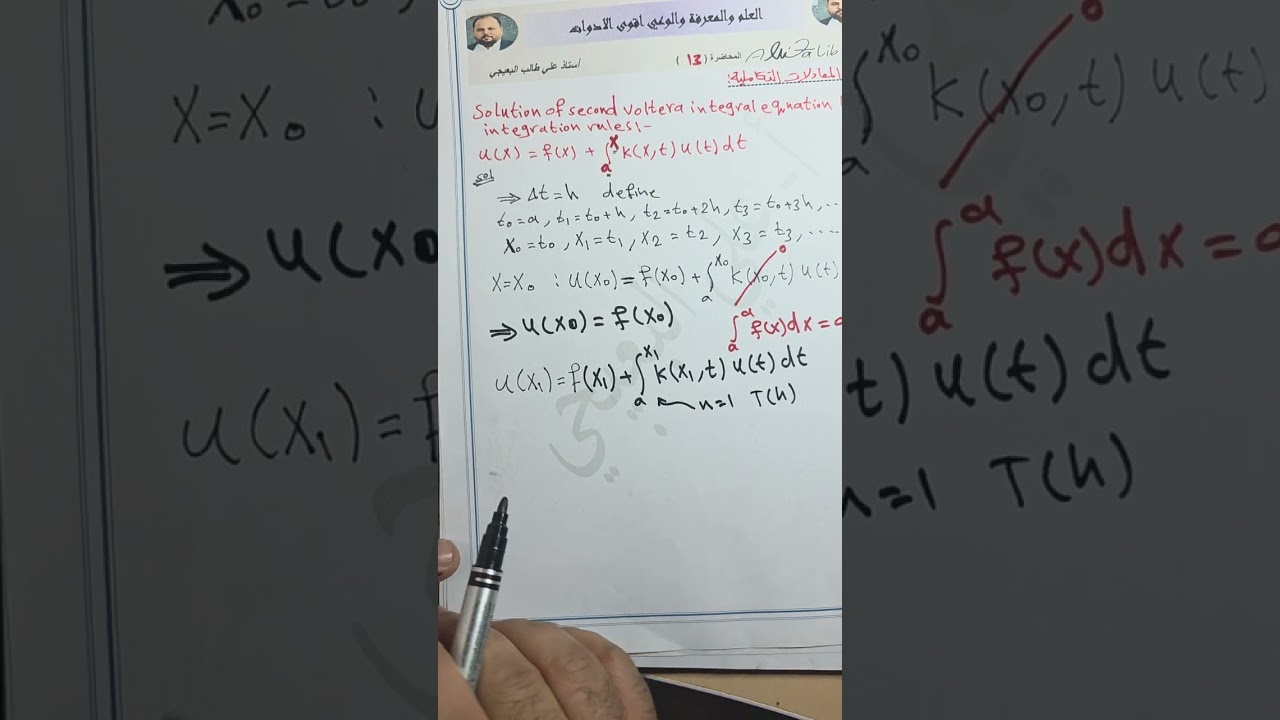 العلم والمعرفة والوعي اقوى الادوات
أستاذ علي طالب البعيجي
المحاضرة (13)
المعادلات التكاملية:
Solution of second voltera integral equation
integration rules:-
u(x) = f(x) + ∫ₐˣ k(x,t) u(t) dt
sol
⇒ Δt = h define
t₀ = a, t₁ = t₀+h, t₂ = t₀+2h, t₃ = t₀+3h, ..
x₀ = t₀, x₁ = t₁, x₂ = t₂, x₃ = t₃, ....
x = x₀ : u(x₀) = f(x₀) + ∫ₐˣ⁰ k(x₀,t) u(t)
0
⇒ u(x₀) = f(x₀)
∫ₐᵃ f(x)dx = 0
u(x₁) = f(x₁) + ∫ₐˣ¹ k(x₁,t) u(t) dt
n=1 T(h)